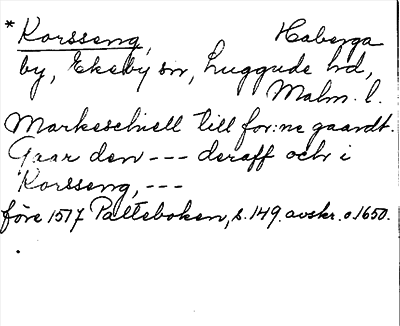 * Korsseng, Haberga
by, Ekeby sn, Luggude hd,
Malm. l.
Markeschiell till for:ne gaardt.
Gaar den --- deraff och i
Korsseng, ---
före 1517 Palteboken, s. 149. avskr. o 1650.